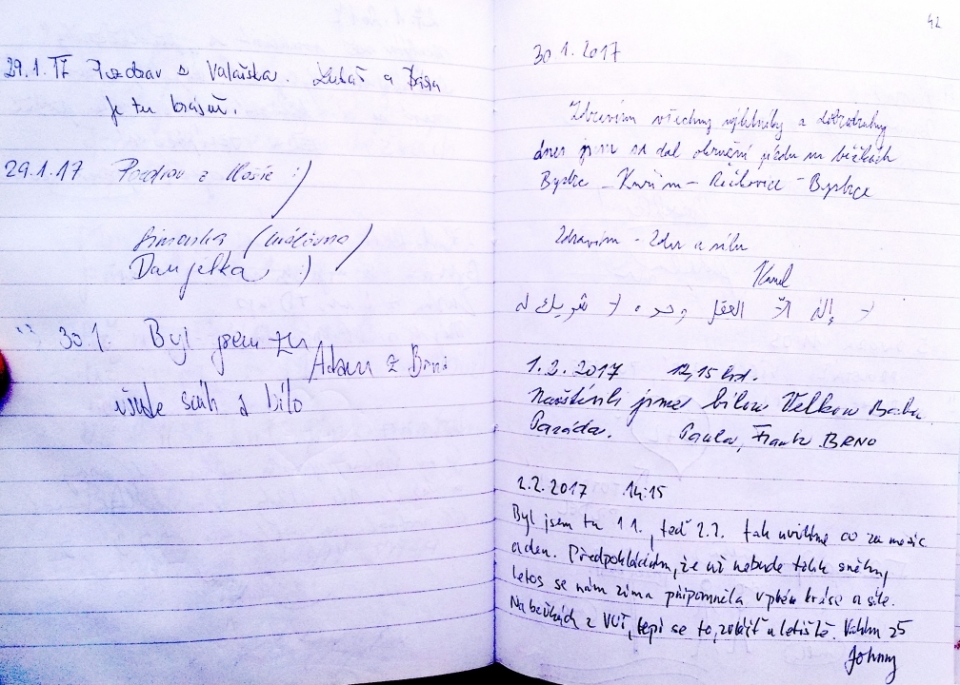 29.1.17 Pozdrav z Valašska. Lukáš a
je tu krásně.
29.1.17 Pozdrav z :)
Simonka
Danjelka :)
30.1. Byl jsem tu
Adam z Brna
všude sníh a bílo
42
30.1.2017
Zdravím všechny výletníky a dobrodruhy
dnes jsem si dal okružní jízdu na běžkách
Kuřim
Zdravím - Zdar a sílu
Karel
العقل وحده شريك له
2017 12,15 hod.
Navštívili jsme bílou Velkou Babu.
Paráda. Paula, Frank BRNO
2.2.2017 14:15
Byl jsem tu 1.1., teď 2.2. tak uvidíme co za měsíc
a den. Předpokládám, že už nebude tolik sněhu,
letos se nám zima připomněla v plné kráse a síle.
Na běžkách z VUT, lepí se to, zvlášť u letiště. 25
Johnny